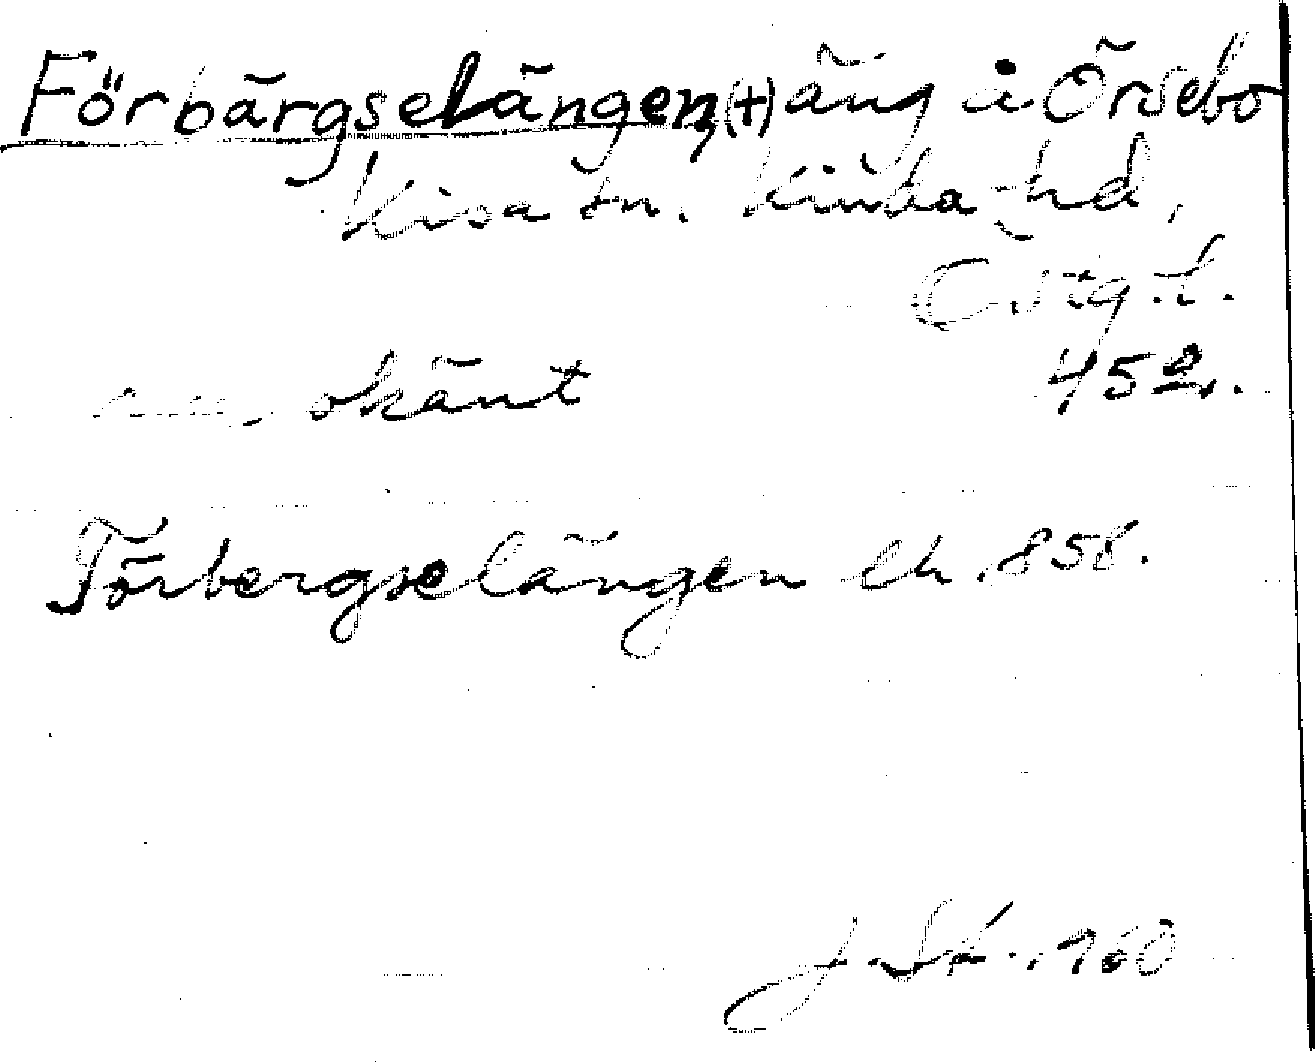 Förbärgselängen, (+) äng å Örsebo
Kisa sn. Kinda hd,
Östg.l.
okänt 452.
Förbergselängen Ch. 858.
J. Sk. 1960